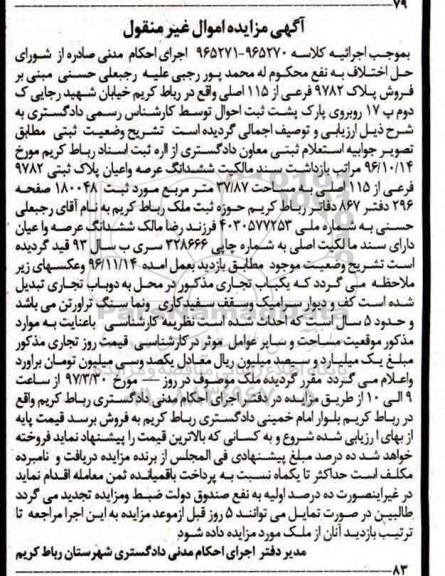 ۷۹
آگهی مزایده اموال غیر منقول
بموجب اجرائیه کلاسه ۹۶۵۲۷۰-۹۶۵۲۷۱ اجرای احکام مدنی صادره از شورای
حل اختلاف به نفع محکوم له محمد پور رجبی علیه رجبعلی حسنی مبنی بر
فروش پلاک ۹۷۸۲ فرعی از ۱۱۵ اصلی واقع در رباط کریم خیابان شهید رجایی ک
دوم پ ۱۷ روبروی پارک پشت ثبت احوال توسط کارشناس رسمی دادگستری به
شرح ذیل ارزیابی و توصیف اجمالی گردیده است تشریح وضعیت ثبتی مطابق
تصویر جوابیه استعلام ثبتی معاون دادگستری از اداره ثبت اسناد رباط کریم مورخ
۹۶/۱۰/۱۴ مراتب بازداشت سند مالکیت ششدانگ عرصه واعیان پلاک ثبتی ۹۷۸۲
فرعی از ۱۱۵ اصلی به مساحت ۳۷/۸۷ متر مربع مورد ثبت ۱۸۰۰۴۸ صفحه
۲۹۶ دفتر ۸۶۷ دفاتر رباط کریم حوزه ثبت ملک رباط کریم به نام آقای رجبعلی
حسنی به شماره ملی ۴۰۳۰۵۷۷۲۵۳ فرزند رضا مالک ششدانگ عرصه وا عیان
دارای سند مالکیت اصلی به شماره چاپی ۳۲۸۶۶۶ سری ب سال ۹۳ قید گردیده
است تشریح وضعیت موجود مطابق بازدید بعمل امده ۹۶/۱۱/۱۴ وعکسهای زیر
ملاحظه می گردد که یکباب تجاری مذکور در محل به دوباب تجاری تبدیل
شده است کف و دیوار سرامیک وسقف سفیدکاری ونما سنگ تراورتن می باشد
و حدود ۵ سال است که احداث شده است نظریه کارشناسی باعنایت به موارد
مذکور موقعیت مساحت و سایر عوامل موثر در کارشناسی قیمت روز تجاری مذکور
مبلغ یک میلیارد و سیصد میلیون ریال معادل یکصد وسی میلیون تومان براورد
واعلام می گردد مقرر گردید ملک موصوف در روز — مورخ ۹۷/۳/۳۰ از ساعت
۹ الی ۱۰ از طریق مزایده در دفتر اجرای احکام مدنی دادگستری رباط کریم واقع
در رباط کریم بلوار امام خمینی دادگستری رباط کریم به فروش برسد قیمت پایه
از بهای ارزیابی شده شروع و به کسانی که بالاترین قیمت را پیشنهاد نماید فروخته
خواهد شد ده درصد مبلغ پیشنهادی فی المجلس از برنده مزایده دریافت و نامبرده
مکلف است حداکثر تا یکماه نسبت به پرداخت باقمیانده ثمن معامله اقدام نماید
در غیراینصورت ده درصد اولیه به نفع صندوق دولت ضبط ومزایده تجدید می گردد
طالبین در صورت تمایل می توانند ۵ روز قبل ازموعد مزایده به این اجرا مراجعه تا
ترتیب بازدید آنان از ملک مورد مزایده داده شود
مدیر دفتر اجرای احکام مدنی دادگستری شهرستان رباط کریم
۸۳